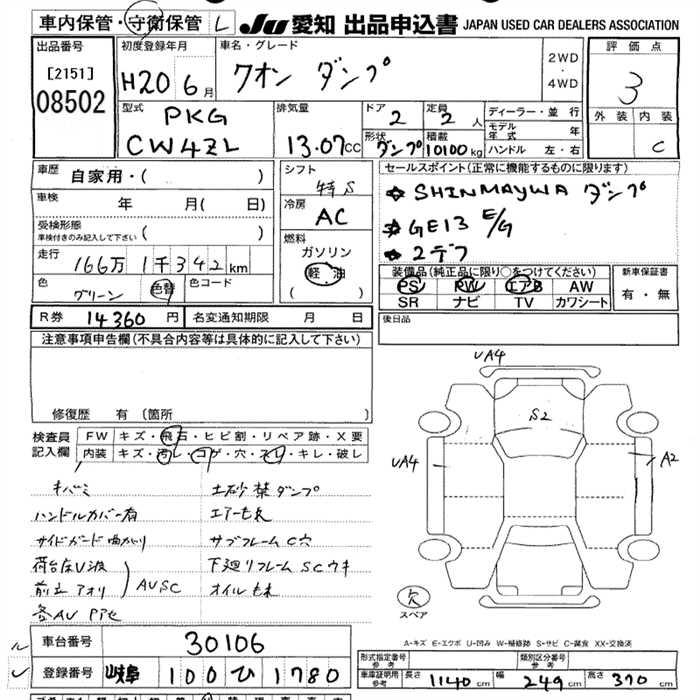 車内保管・守衛保管 L JU 愛知 出品申込書 JAPAN USED CAR DEALERS ASSOCIATION
出品番号 [2151] 08502
初度登録年月 H20 6月
車名・グレード クオン ダンプ
2WD・4WD
評価点 3
外装 内装 C
型式 PKG CW4ZL
排気量 13.07CC
ドア 2 定員 2人
形状 ダンプ 積載 10100kg
ディーラー・並行
モデル年式 年
ハンドル 左・右
車歴 自家用・( )
シフト
セールスポイント(正常に機能するものに限ります)
☆ SHINMAYWA ダンプ
☆ GE13 E/G
☆ 2デフ
車検 年 月( 日)
冷房 AC
受検形態 車検付きのみ記入して下さい ( )
燃料 ガソリン 軽油 ( )
走行 166万1千342km
色 グリーン 色替 色コード
装備品(純正品に限り○をつけてください)
PS PW エアB AW
SR ナビ TV カワシート
新車保証書 有・無
R券 14360円 名変通知期限 月 日
後日品
注意事項申告欄(不具合内容等は具体的に記入して下さい)
修復歴 有 (箇所
検査員記入欄
FW キズ・飛石・ヒビ割・リペア跡・X要
内装 キズ・汚レ・コゲ・穴・スレ・キレ・破レ
UA4
S2
UA4
A2
キバミ
ハンドルカバー有
サイドガード曲がり
荷台床U波
前立アオリ AUSC
各AU PPセ
土砂禁ダンプ
エアーもれ
サブフレームC穴
下廻リフレームSCウキ
オイルもれ
欠 スペア
A-キズ E-エクボ U-凹み W-補修跡 S-サビ C-腐食 XX-交換済
車台番号 30106
登録番号 岐阜 100 ひ 1780
形式指定番号 参考
類別区分番号 参考
車庫証明用 参考 長さ 1140cm 幅 249cm 高さ 370cm